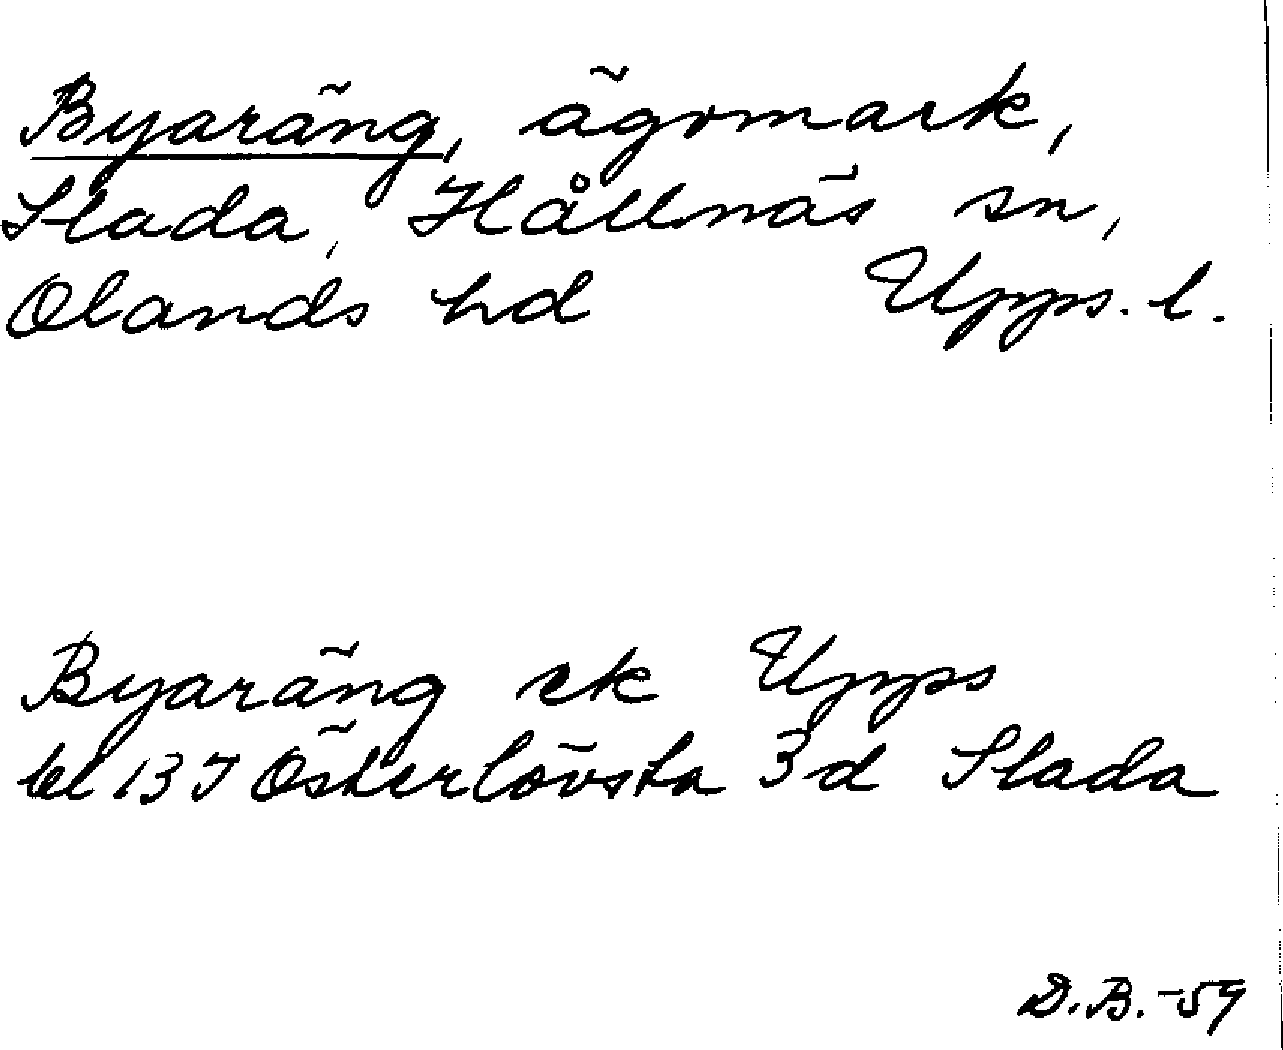 Byaräng, ägomark,
Slada, Hållnäs sn,
Olands hd Upps. l.
Byaräng ek Upps
bl 13 I Österlövsta 3 d Slada
D.B.-59